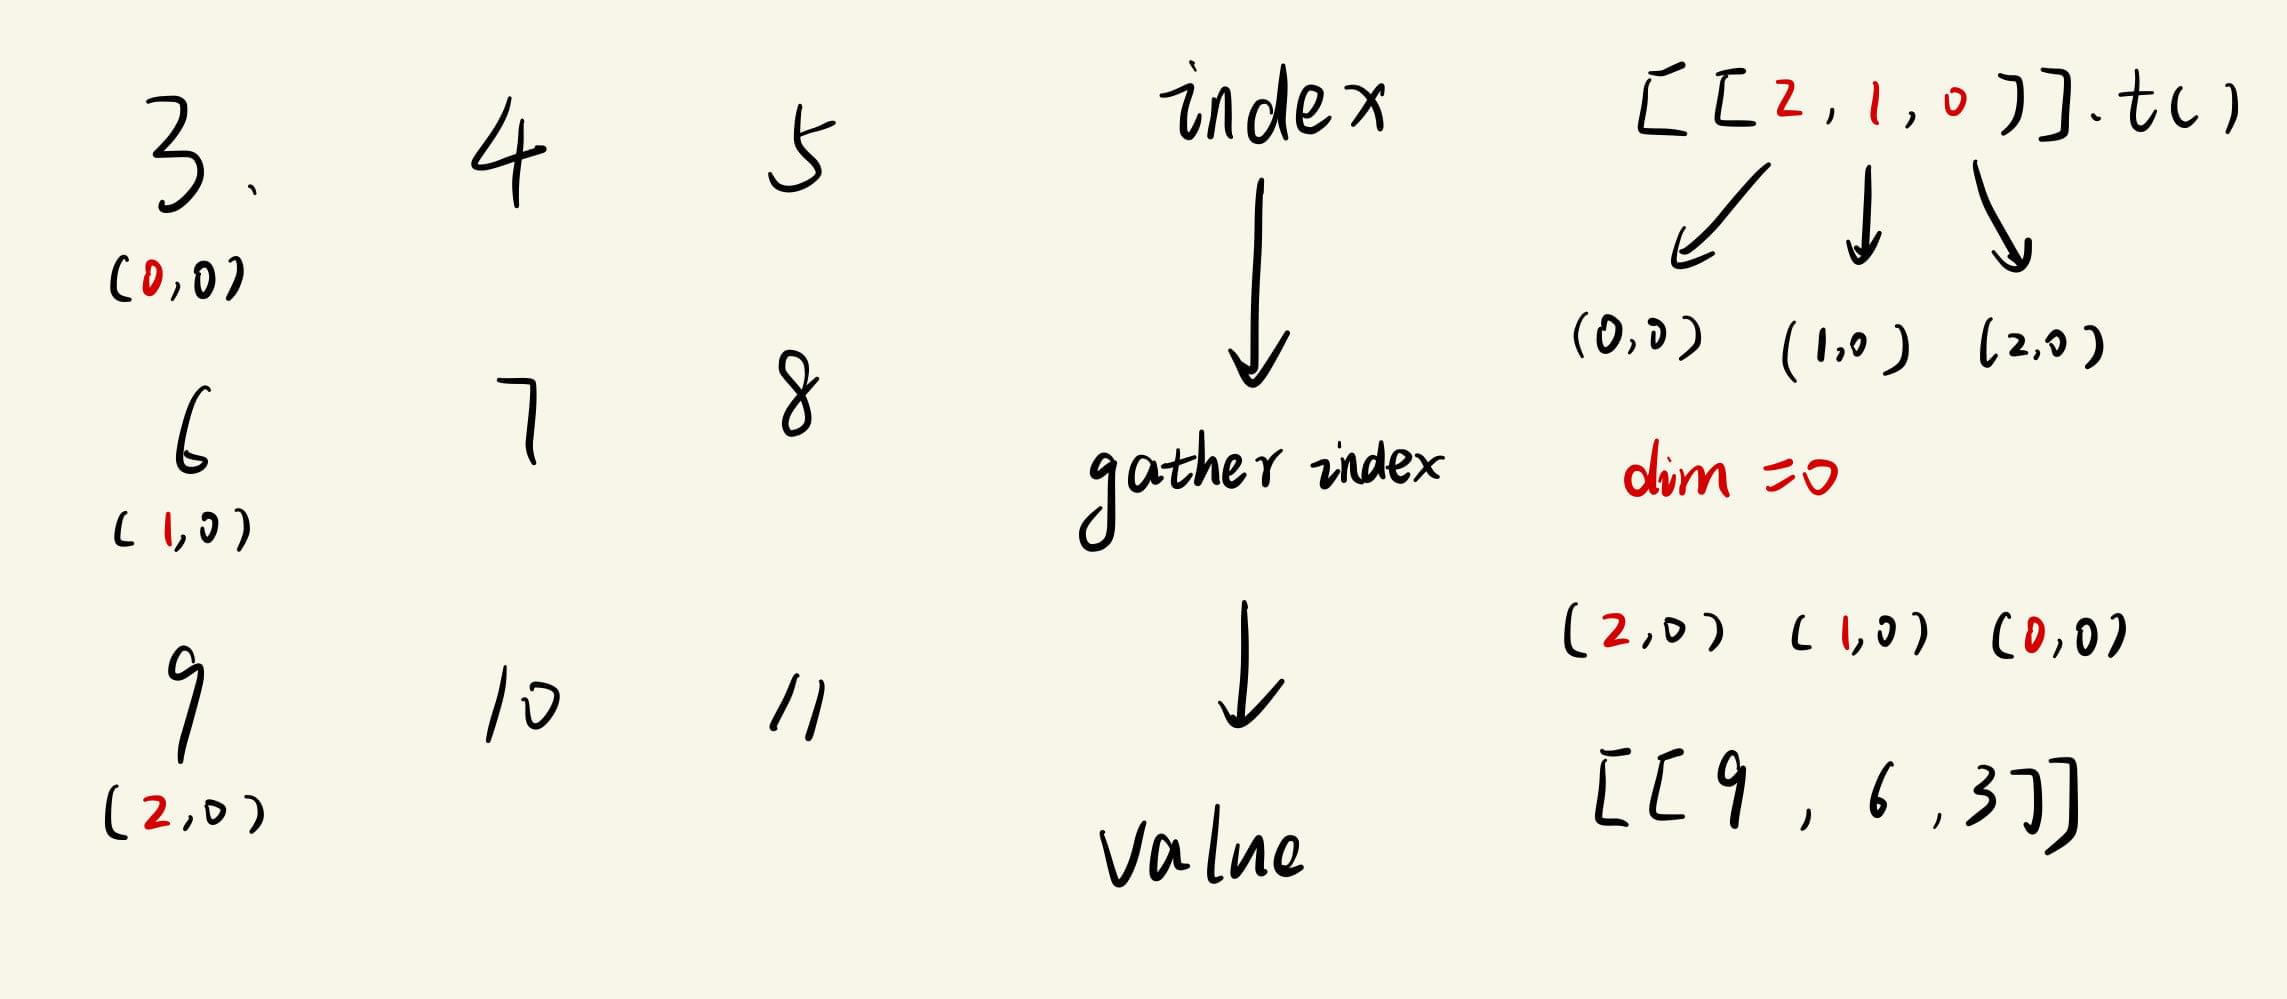 3. 4 5
(0,0)
6 7 8
(1,0)
9 10 11
(2,0)
index
gather index
value
[[2,1,0]].t()
(0,0) (1,0) (2,0)
dim=0
(2,0) (1,0) (0,0)
[[9,6,3]]